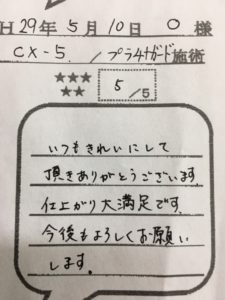 H29年5月10日 O 様
CX-5 / プラチナガード施術
★★★
★★
5/5
いつもきれいにして
頂きありがとうございます。
仕上がり大満足です。
今後もよろしくお願い
します。